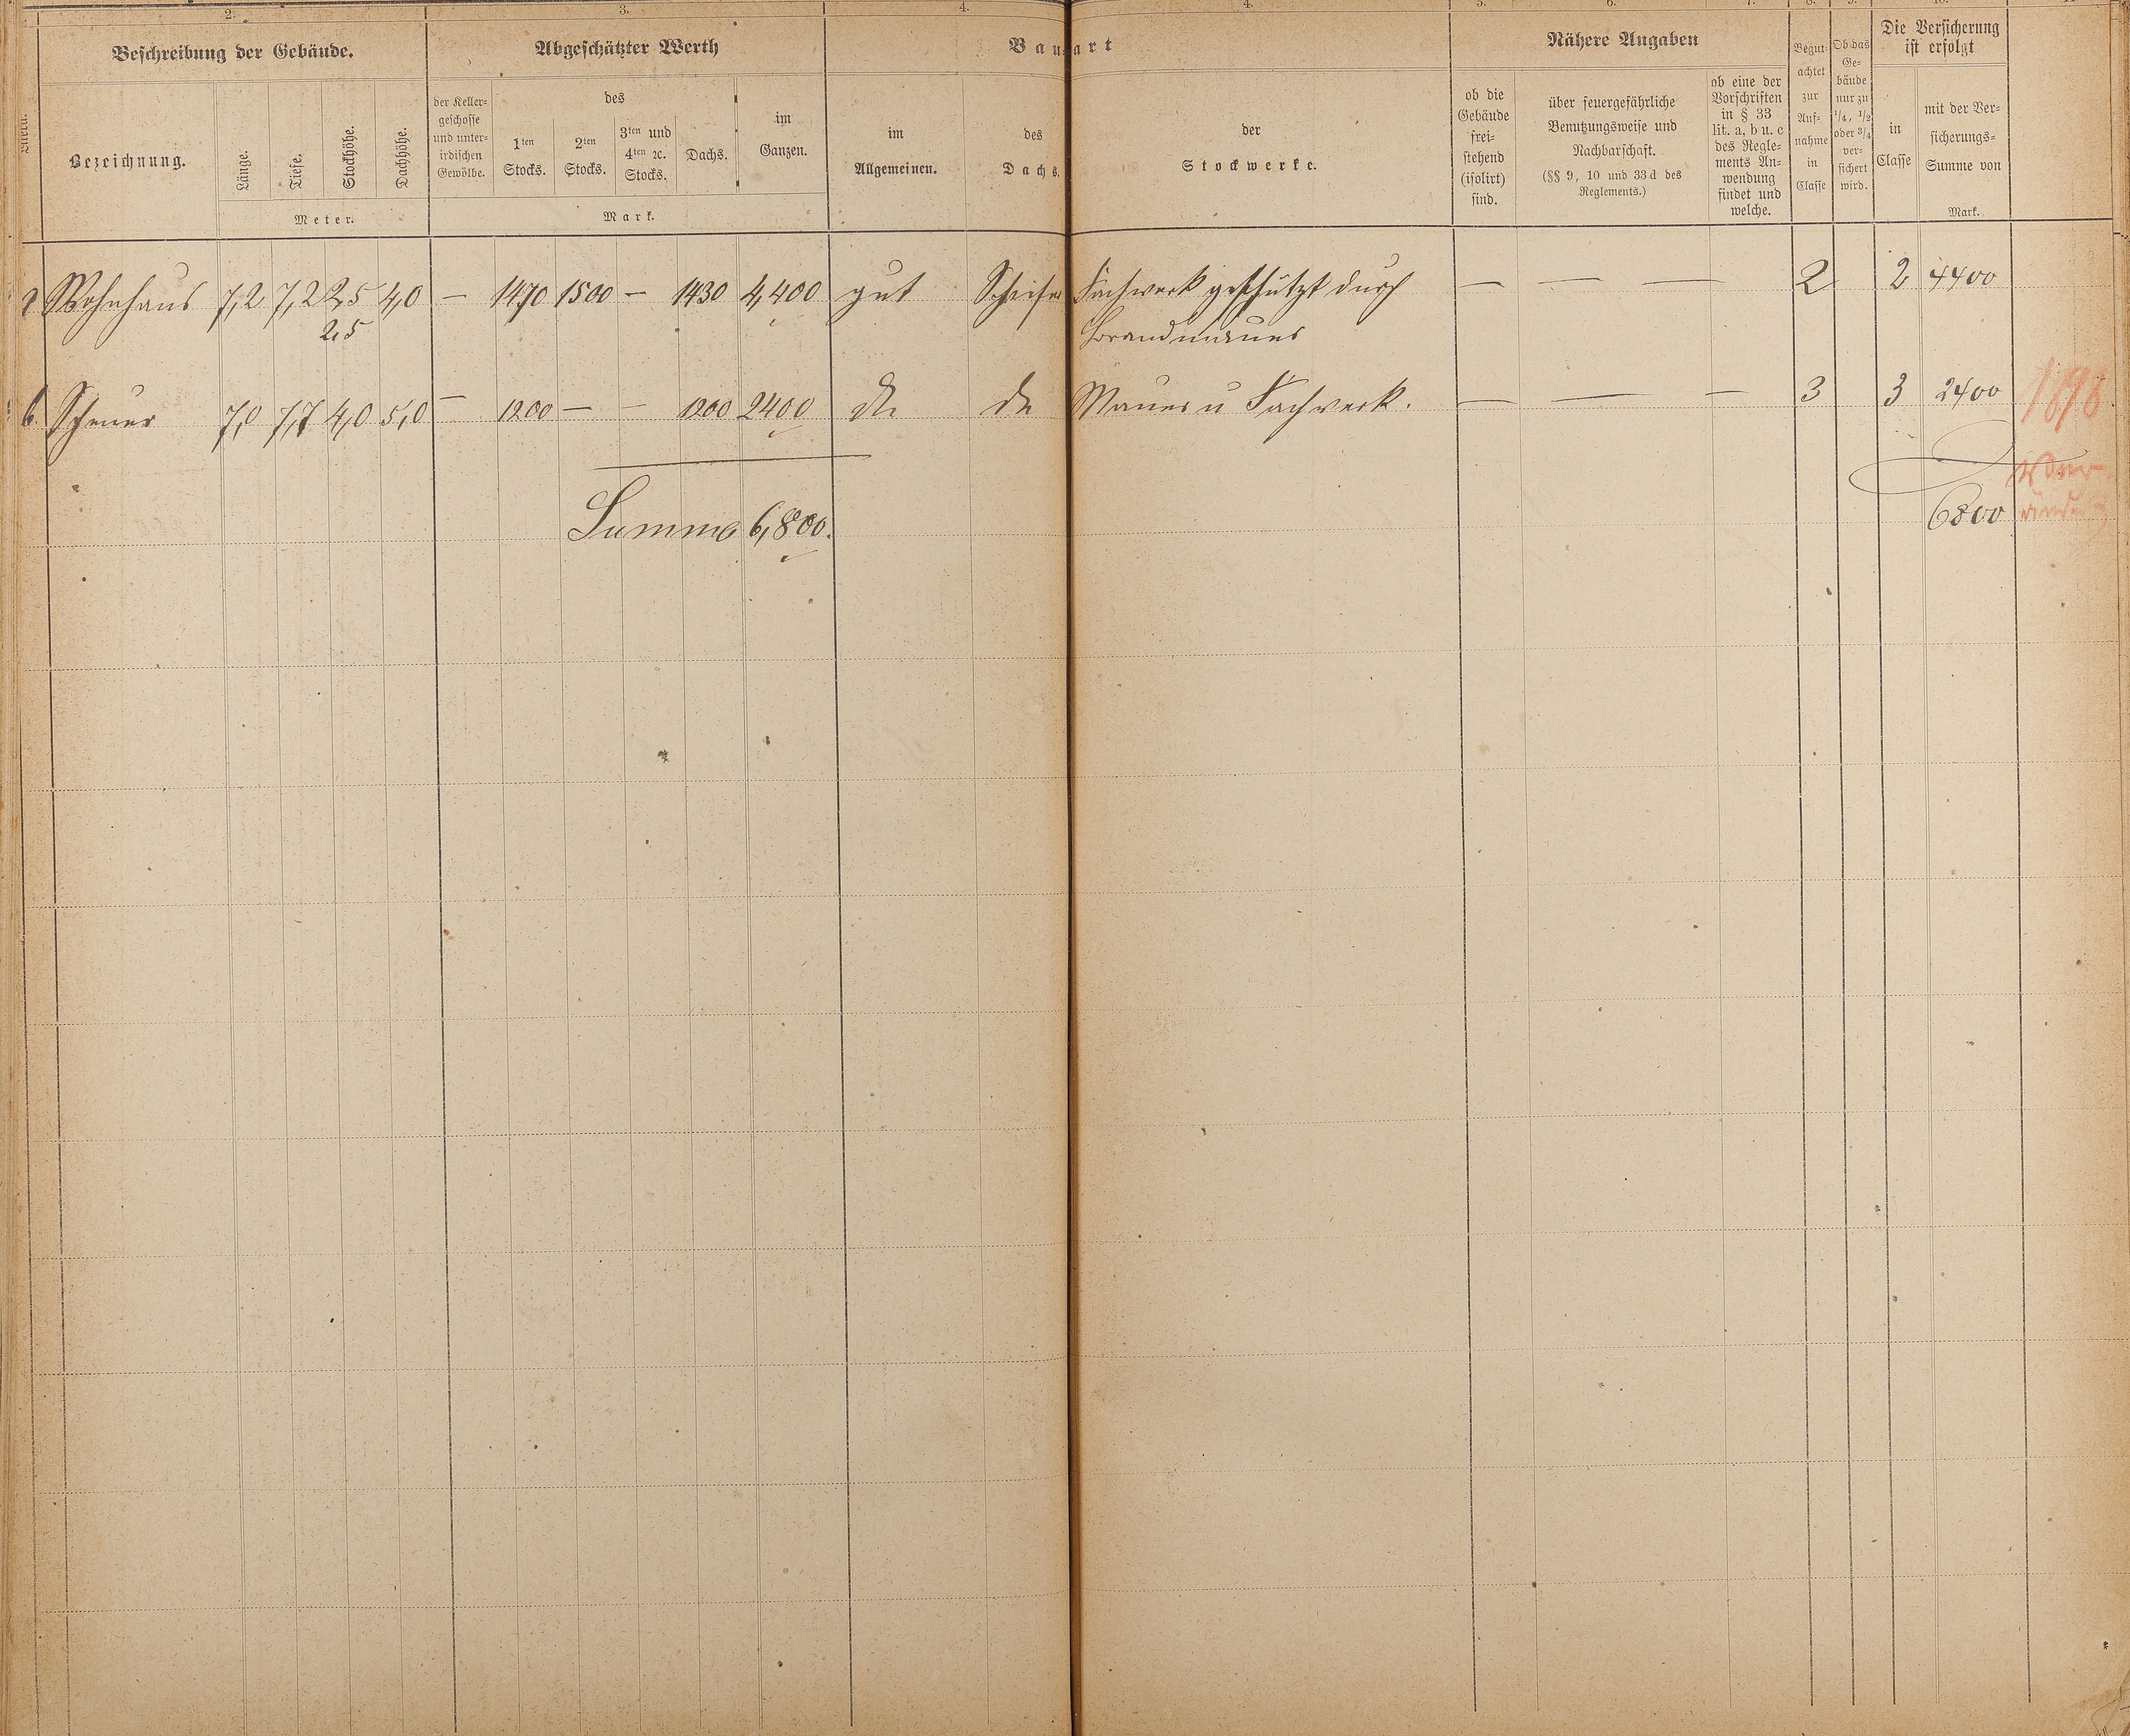 2. 3. 4. 4. 5. 6. 7. 8. 9. 10.
Beschreibung der Gebäude. Abgeschätzter Werth Bauart Nähere Angaben Die Versicherung ist erfolgt
Bezeichnung. Länge. Tiefe. Stockhöhe. Dachhöhe.
Meter.
der Keller-
geschosse
und unter-
irdischen
Gewölbe.
des
1ten Stocks.
2ten Stocks.
3ten und
4ten ꝛc.
Stocks.
Dachs.
im
Ganzen.
Mark.
im
Allgemeinen.
des
Dachs.
der
Stockwerke.
ob die
Gebäude
frei-
stehend
(isolirt)
sind.
über feuergefährliche
Benutzungsweise und
Nachbarschaft.
(§§ 9, 10 und 33 d des
Reglements.)
ob eine der
Vorschriften
in § 33
lit. a, b u. c
des Regle-
ments An-
wendung
findet und
welche.
Begut-
achtet
zur
Auf-
nahme
in
Classe
Ob das
Ge-
bäude
nur zu
1/4, 1/2
oder 3/4
ver-
sichert
wird.
in
Classe
mit der Ver-
sicherungs-
Summe von
Mark.
a Wohnhaus 7,2 7,2 2,5 4,0 — 1470 1500 — 1430 4,400 gut Schiefer Fachwerk geschützt durch — — — 2 2 4400
2,5 Brandmauer
b. Scheuer 7,0 7,7 4,0 5,0 — 1200 — — 1200 2400 do do Mauer u Fachwerk. — — — 3 3 2400 1898
Summa 6,800. 6800